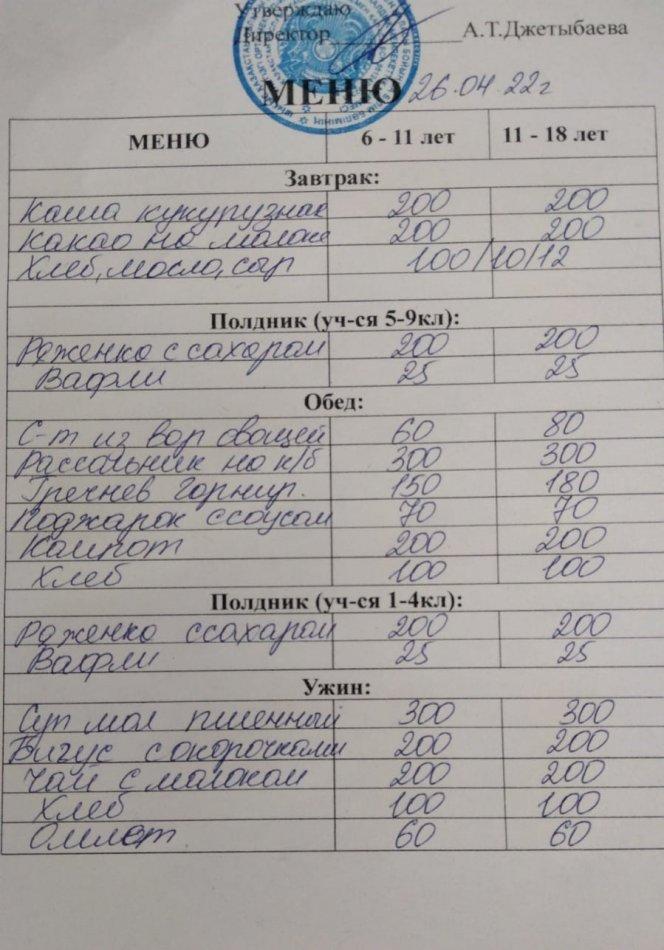 Утверждаю
Директор А.Т.Джетыбаева
МЕНЮ 26.04.22г
МЕНЮ 6 - 11 лет 11 - 18 лет
Завтрак:
Каша кукурузная 200 200
Какао на молоке 200 200
Хлеб, масло, сыр 100/10/12
Полдник (уч-ся 5-9кл):
Ряженко с сахаром 200 200
Вафли 25 25
Обед:
С-т из вар овощей 60 80
Рассольник на к/б 300 300
Гречнев гарнир. 150 180
Поджарок с соусом 70 70
Компот 200 200
Хлеб 100 100
Полдник (уч-ся 1-4кл):
Ряженко с сахаром 200 200
Вафли 25 25
Ужин:
Суп мол пшенный 300 300
Бигус с окорочками 200 200
Чай с молоком 200 200
Хлеб 100 100
Омлет 60 60